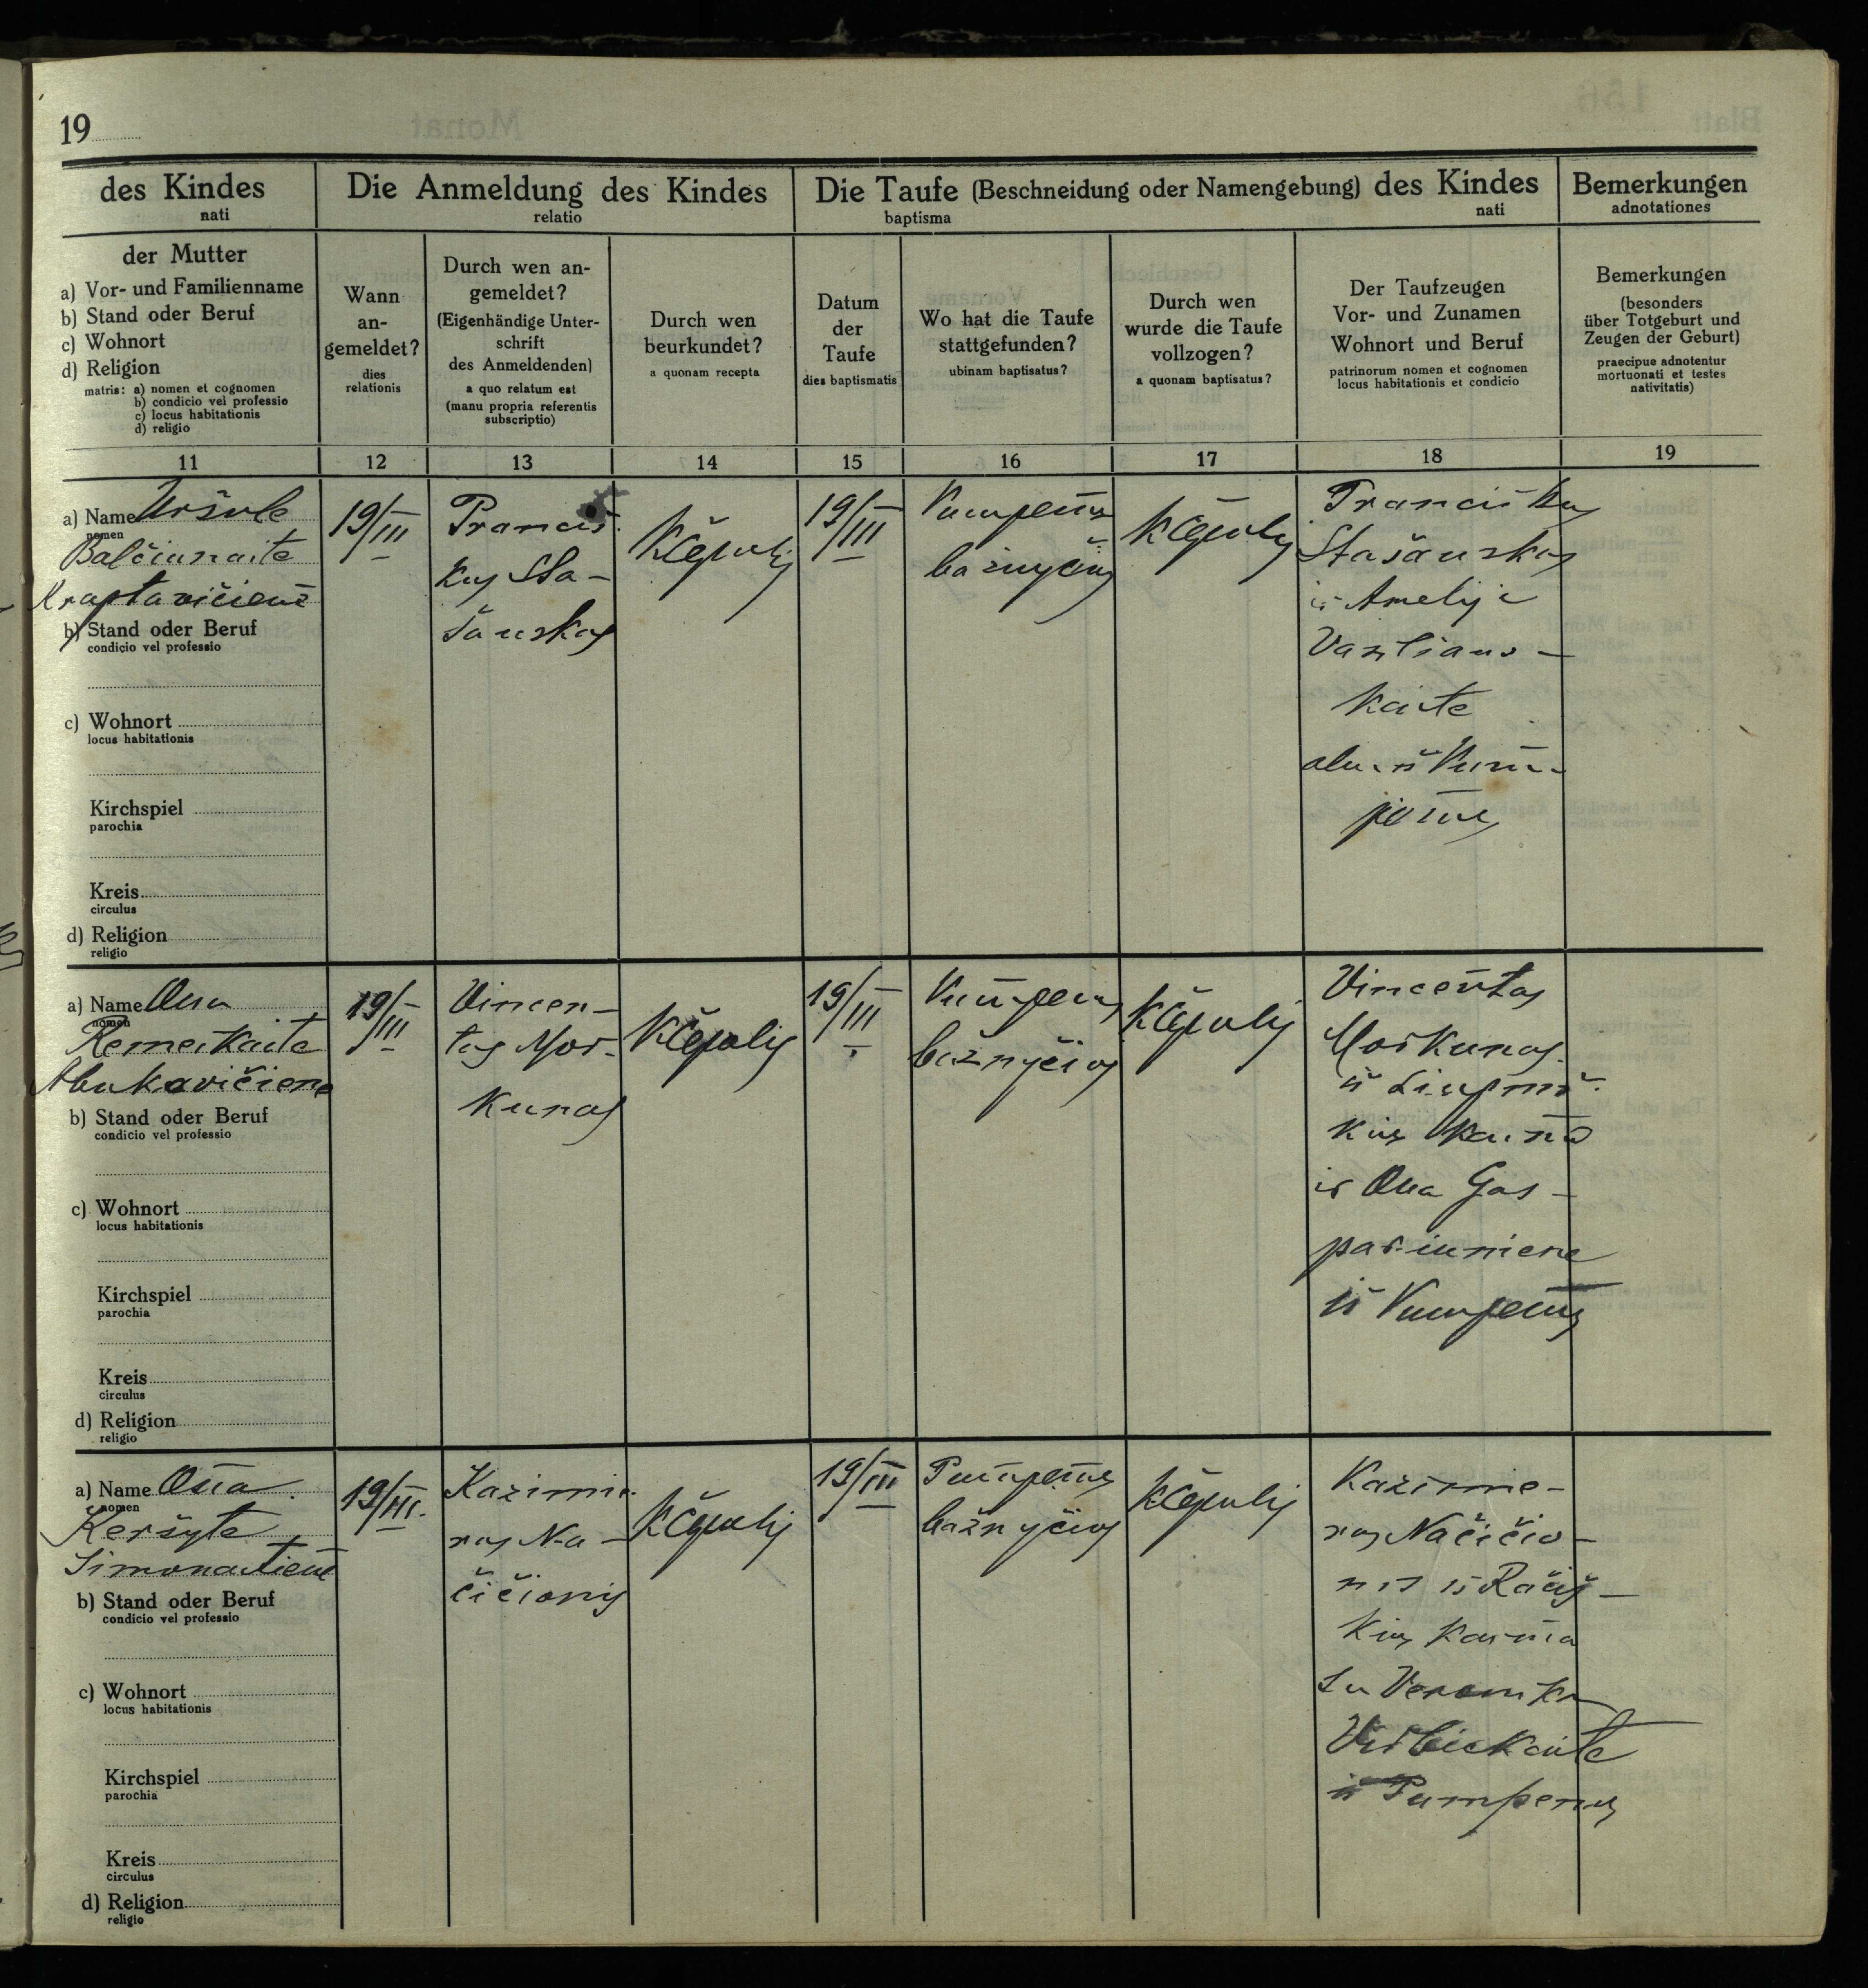 19
des Kindes
nati
Die Anmeldung des Kindes
relatio
Die Taufe (Beschneidung oder Namengebung) des Kindes
baptisma nati
Bemerkungen
adnotationes
der Mutter
a) Vor- und Familienname
b) Stand oder Beruf
c) Wohnort
d) Religion
matris: a) nomen et cognomen
b) condicio vel professio
c) locus habitationis
d) religio
Wann
an-
gemeldet?
dies
relationis
Durch wen an-
gemeldet?
(Eigenhändige Unter-
schrift
des Anmeldenden)
a quo relatum est
(manu propria referentis
subscriptio)
Durch wen
beurkundet?
a quonam recepta
Datum
der
Taufe
dies baptismatis
Wo hat die Taufe
stattgefunden?
ubinam baptisatus?
Durch wen
wurde die Taufe
vollzogen?
a quonam baptisatus?
Der Taufzeugen
Vor- und Zunamen
Wohnort und Beruf
patrinorum nomen et cognomen
locus habitationis et condicio
Bemerkungen
(besonders
über Totgeburt und
Zeugen der Geburt)
praecipue adnotentur
mortuonati et testes
nativitatis)
11 12 13 14 15 16 17 18 19
a) Name Uršule
nomen
Balčiunaite
Krastavičienė
b) Stand oder Beruf
condicio vel professio
c) Wohnort
locus habitationis
Kirchspiel
parochia
Kreis
circulus
d) Religion
religio
19/III
Pranciš-
kus Sta-
šauskas
KČepulis
19/III
Pumpėnų
bažnyčioj
KČepulis
Pranciškus
Stašauskas
ir Amelija
Vazliaus-
kaite
abu iš Pum-
pėnų
a) Name Ona
nomen
Remeikaite
Abukavičiene
b) Stand oder Beruf
condicio vel professio
c) Wohnort
locus habitationis
Kirchspiel
parochia
Kreis
circulus
d) Religion
religio
19/III
Vincen-
tas Mor-
kunas
KČepulis
19/III
Pumpėnų
bažnyčioj
KČepulis
Vincentas
Morkunas
iš
kių kaimo
ir Ona Gas-
pariuniene
iš Pumpėnų
a) Name Ona
nomen
Keršyte
Simonaitienė
b) Stand oder Beruf
condicio vel professio
c) Wohnort
locus habitationis
Kirchspiel
parochia
Kreis
circulus
d) Religion
religio
19/III.
Kazimie-
ras Na-
čičionis
KČepulis
19/III
Pumpėnų
bažnyčioj
KČepulis
Kazimie-
ras Načičio-
nis iš Račiš-
kių kaimo
su Veronika
Virbickaite
iš Pumpenų